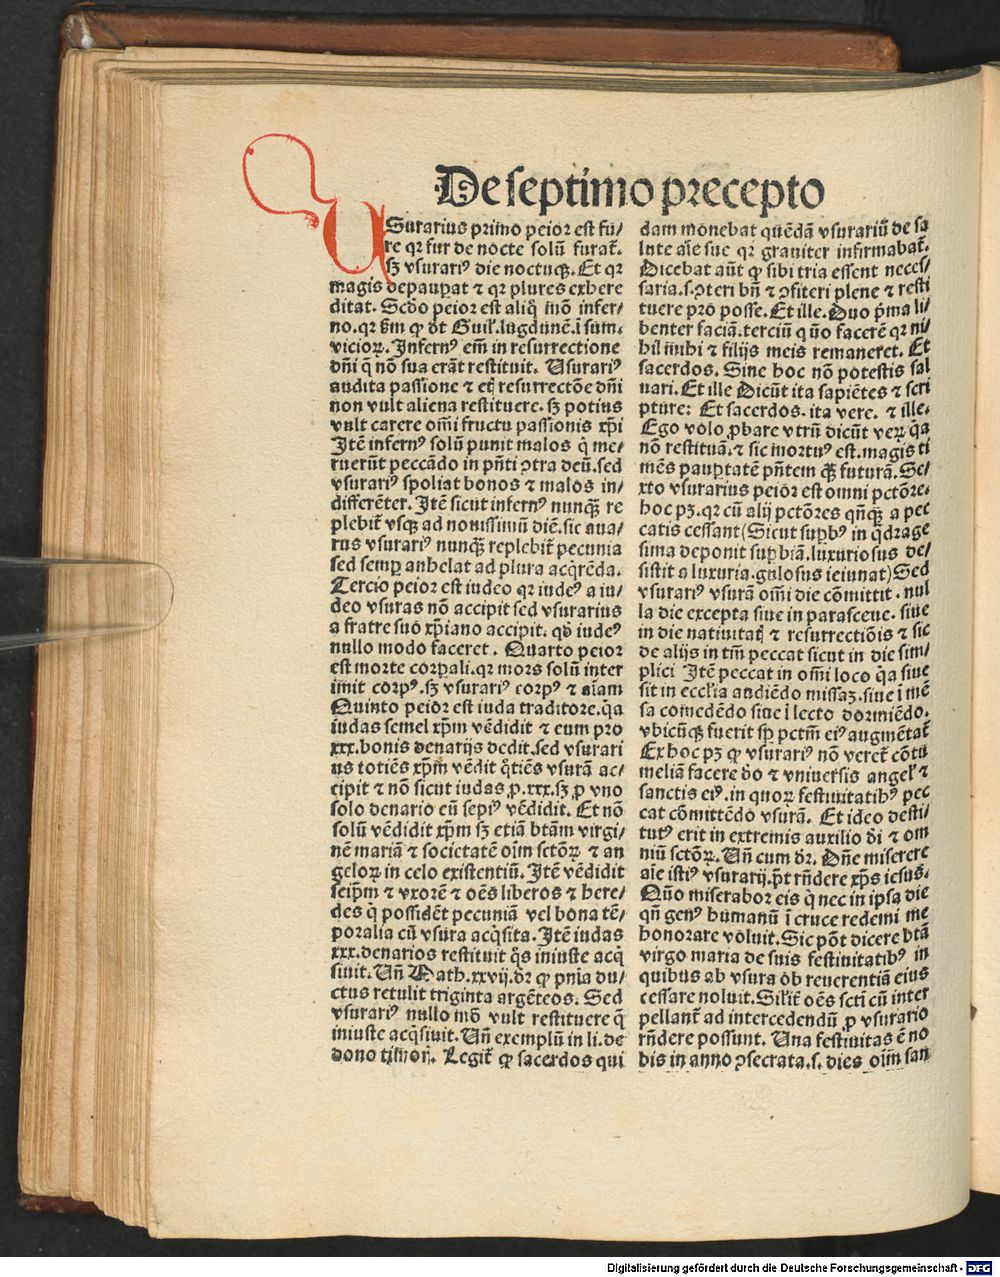 De septimo precepto
USurarius primo peior est fu/
re qꝛ fur de nocte solū furat̃.
sꝫ vsurariꝰ die noctuqꝫ. Et qꝛ
magis depauꝑat ⁊ qꝛ plures exhere
ditat. Scd̃o peior est aliq̃ mō infer⸗
no. qꝛ s̃m ꝙ dt̃ Guil̃. lugdunẽ. ī sum.
vicioꝝ. Infernꝰ em̃ in resurrectione
dñi q̃ nō sua erāt restituit. Usurariꝰ
audita passione ⁊ etꝫ resurrectōe dñi
non vult aliena restituere. sꝫ potius
vult carere om̃i fructu passionis xp̃i
Itē infernꝰ solū punit malos q̇ me⸗
ruerūt peccādo in pñti ꝯtra deū. sed
vsurariꝰ spoliat bonos ⁊ malos in/
differēter. Itē sicut infernꝰ nunqꝫ̃ re
plebit̃ vsqꝫ ad nouissimū diē. sic aua/
rus vsurariꝰ nunqꝫ̃ replebit̃ pecunia
sed semꝑ anhelat ad plura acq̇rēda.
Tercio peior est iudeo qꝛ iudeꝰ a iu/
deo vsuras nō accipit sed vsurarius
a fratre suo xp̃iano accipit. qd̃ iudeꝰ
nullo modo faceret. Quarto peior
est morte corꝑali. qꝛ mors solū inter
imit corpꝰ. sꝫ vsurariꝰ corpꝰ ⁊ aiam
Quinto peior est iuda traditore. q̇a
iudas semel xp̃m vēdidit ⁊ eum pro
xxx. bonis denarijs dedit. sed vsurari
us totiēs xp̃m vēdit q̇tiēs vsurā ac/
cipit ⁊ nō sicut iudas ꝓ. xxx. sꝫ ꝓ vno
solo denario eū sepiꝰ vēdidit. Et nō
solū vēdidit xp̃m sꝫ etiā btām virgi/
nē mariā ⁊ societatē oīm sctōꝝ ⁊ an
geloꝝ in celo existentiū. Itē vēdidit
seip̃m ⁊ vxorē ⁊ oēs liberos ⁊ here/
des q̇ possidēt pecuniā vel bona tē/
poralia cū vsura acq̇sita. Itē iudas
xxx. denarios restituit q̇s iniuste acq̇
siuit. Uñ Math. xxvij. dr̃ ꝙ pñia du/
ctus retulit triginta argēteos. Sed
vsurariꝰ nullo mō vult restituere q̃
iniuste acq̇siuit. Uñ exemplū in li. de
dono timoꝝ. Legit̃ ꝙ sacerdos qui
dam monebat quēdā vsurariū de sa
lute aīe sue qꝛ grauiter infirmabat̃.
Dicebat aūt ꝙ sibi tria essent neces/
saria. s. ꝯteri bñ ⁊ ꝯfiteri plene ⁊ resti
tuere pro posse. Et ille. Duo p̃ma li⸗
benter faciā. terciū q̃uo facerē qꝛ ni/
hil mihi ⁊ filijs meis remaneret. Et
sacerdos. Sine hoc nō potestis sal
uari. Et ille Dicūt ita sapiētes ⁊ scri
pture: Et sacerdos. ita vere. ⁊ ille.
Ego volo ꝓbare vtrū dicūt veꝝ q̇a
nō restituā. ⁊ sic mortuꝰ est. magis ti
mēs pauꝑtatē pñtem qꝫ̃ futurā. Se/
xto vsurarius peior est omni pctōre.
hoc pꝫ. qꝛ cū alij pctōres qñqꝫ a pec
catis cessant (Sicut suꝑbꝰ in q̃drage
sima deponit suꝑbiā. luxuriosus de/
sistit a luxuria. gulosus ieiunat) Sed
vsurariꝰ vsurā om̃i die cōmittit. nul
la die excepta siue in parasceue. siue
in die natiuitatꝭ ⁊ resurrectiōis ⁊ sic
de alijs in tm̃ peccat sicut in die sim/
plici Itē peccat in om̃i loco q̇a siue
sit in eccl̃ia audiēdo missaꝫ. siue ī mē
sa comedēdo siue ī lecto dormiēdo.
vbicūqꝫ fuerit sꝑ pctm̃ eiꝰ augmētat̃
Ex hoc pꝫ ꝙ vsurariꝰ nō veret̃ cōtu
meliā facere deo ⁊ vniuersis angel̃ ⁊
sanctis eiꝰ. in quoꝝ festiuitatibꝰ pec
cat cōmittēdo vsurā. Et ideo desti/
tutꝰ erit in extremis auxilio dei ⁊ om
niū sctōꝝ. Uñ cum dr̃. Dñe miserere
aīe istiꝰ vsurarij. pt̃ rñdere xp̃s iesus.
Quō miserabor eis q̇ nec in ipsa die
qñ genꝰ humanū ī cruce redemi me
honorare voluit. Sic pōt dicere btā
virgo maria de suis festiuitatibꝰ in
quibus ab vsura ob reuerentiā eius
cessare noluit. Silit̃ oēs scti cū inter
pellant̃ ad intercedendū ꝓ vsurario
rñdere possunt. Una festiuitas ē no
bis in anno ꝯsecrata. s. dies oīm san
Digitalisierung gefördert durch die Deutsche Forschungsgemeinschaft - DFG